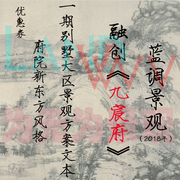 蓝调景观
(2018年)
融创《九宸府》
一期别墅大区景观方案文本
府院新东方风格
优惠券